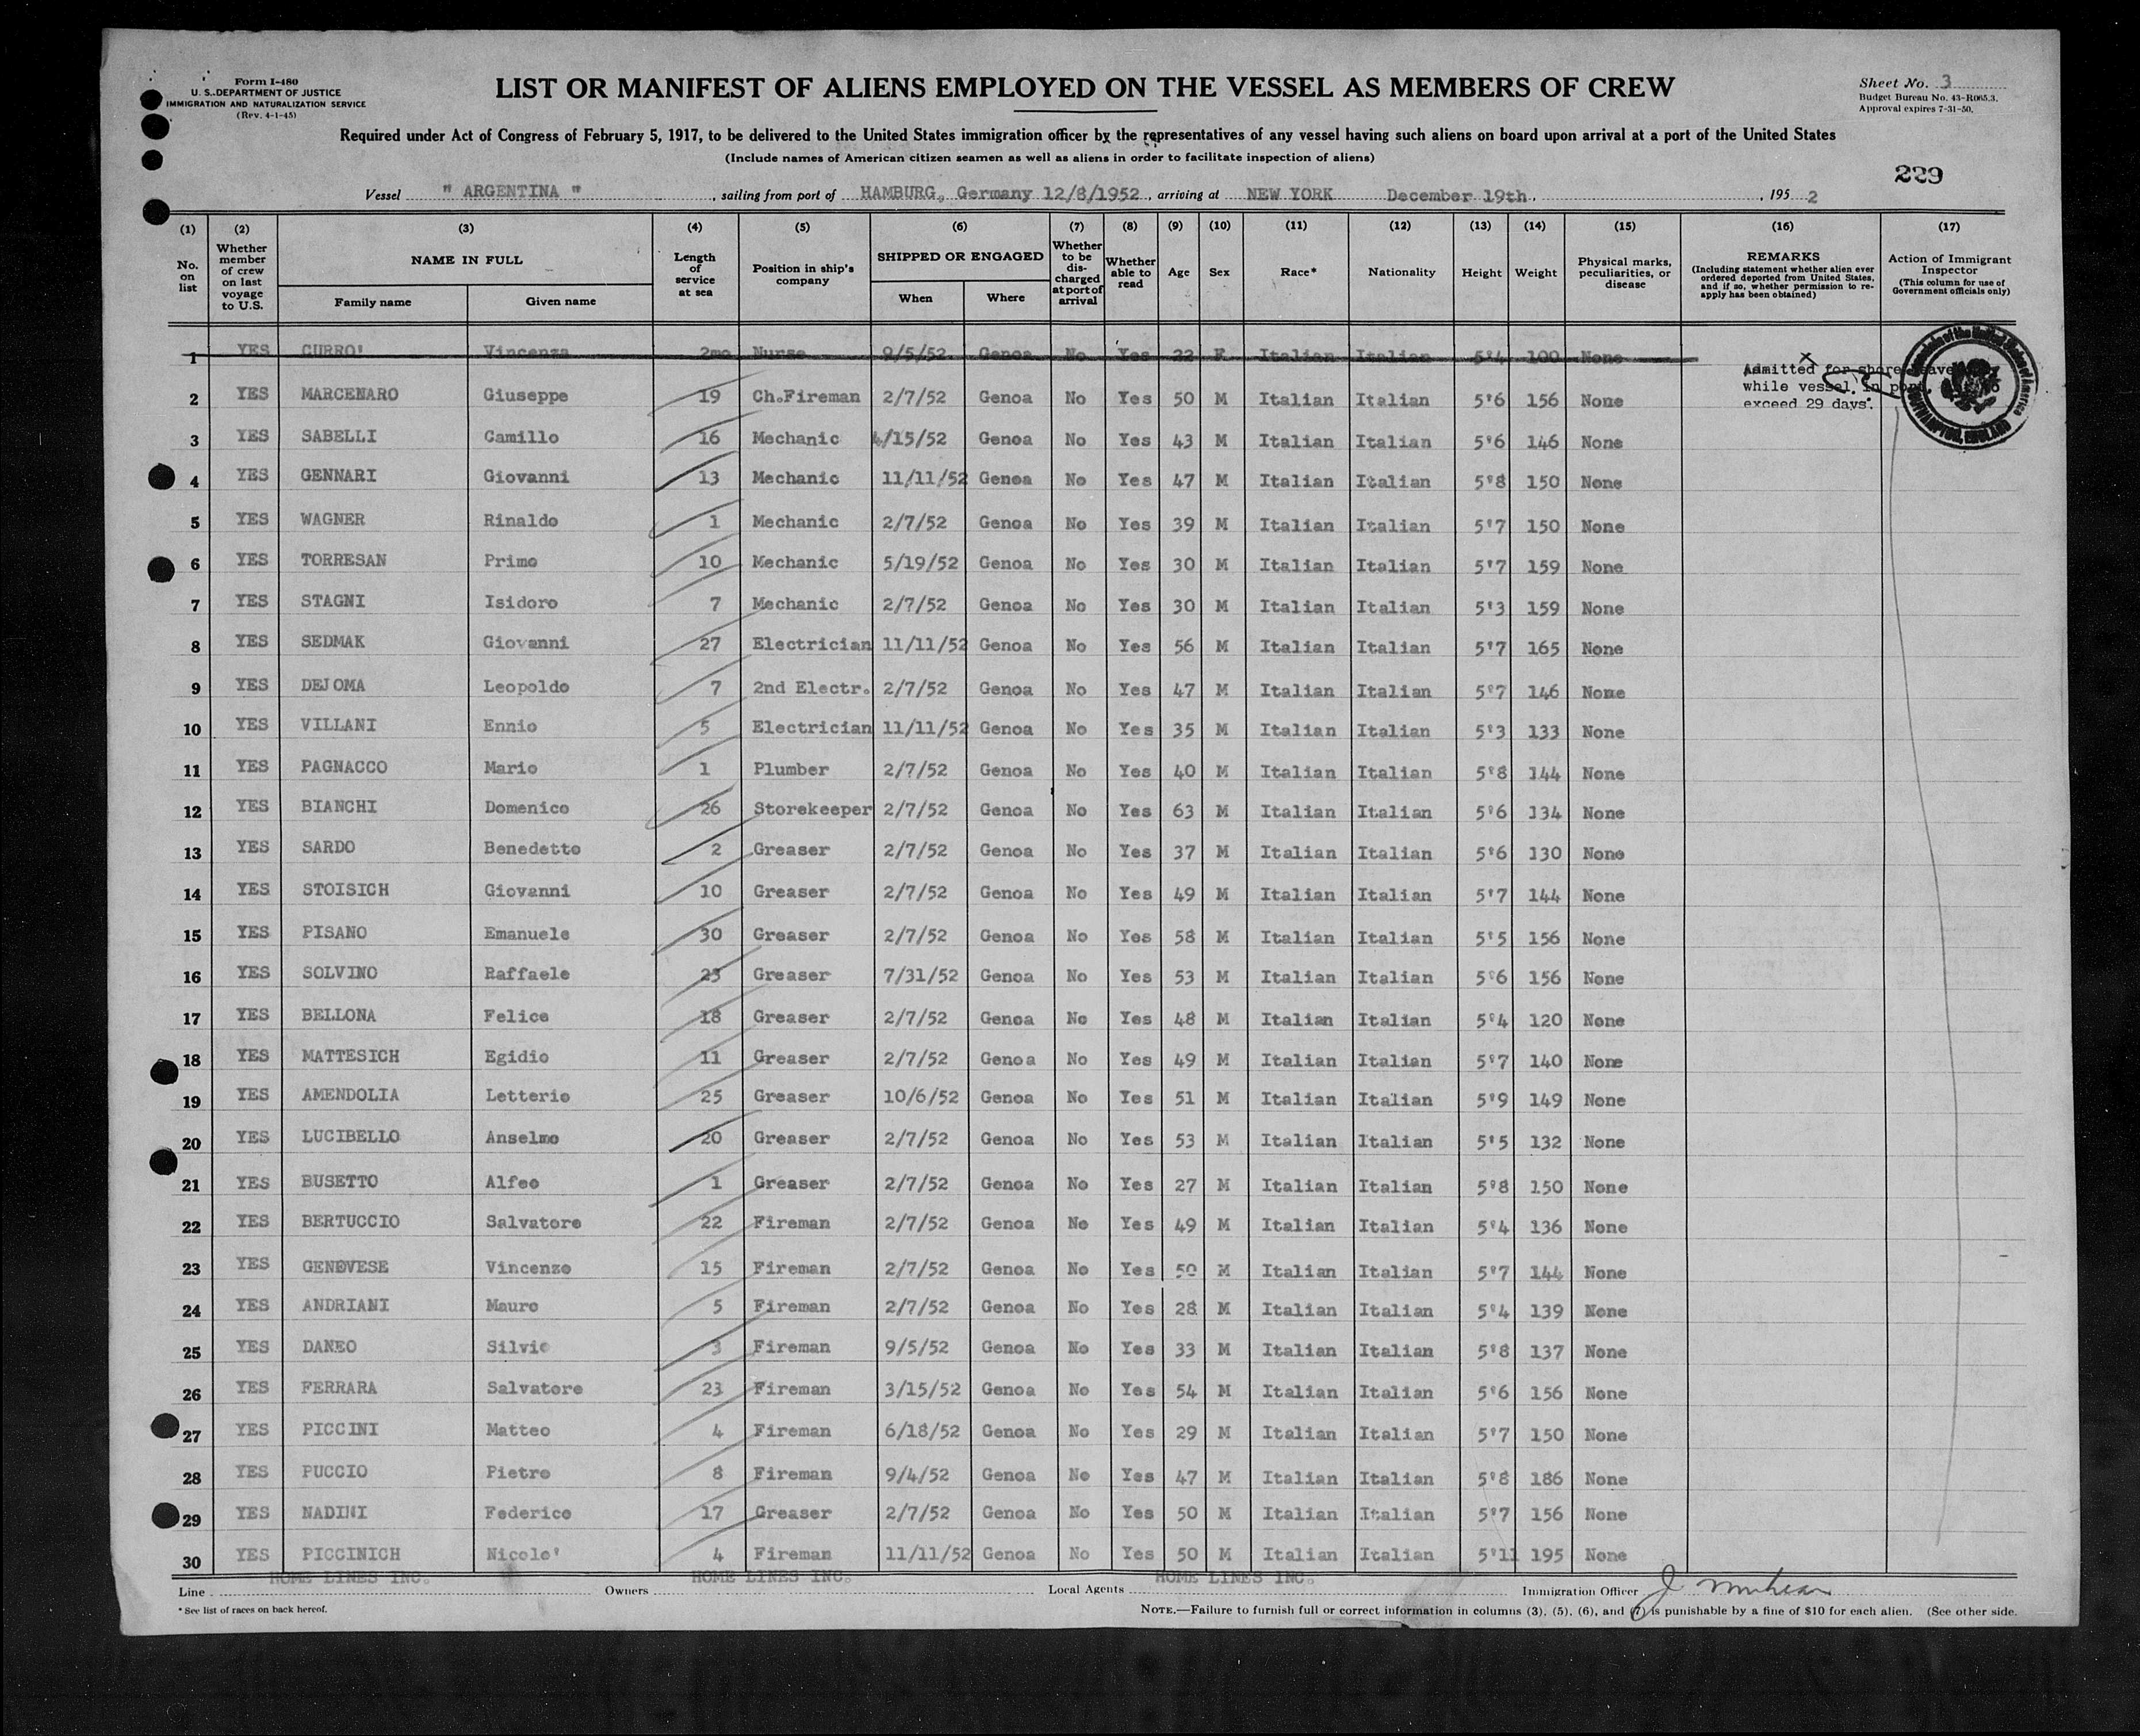 Form I-480
U. S. DEPARTMENT OF JUSTICE
IMMIGRATION AND NATURALIZATION SERVICE
(Rev. 4-1-45)
LIST OR MANIFEST OF ALIENS EMPLOYED ON THE VESSEL AS MEMBERS OF CREW
Sheet No. 3
Budget Bureau No. 43-R065.3.
Approval expires 7-31-50.
Required under Act of Congress of February 5, 1917, to be delivered to the United States immigration officer by the representatives of any vessel having such aliens on board upon arrival at a port of the United States
(Include names of American citizen seamen as well as aliens in order to facilitate inspection of aliens)
229
Vessel " ARGENTINA " , sailing from port of HAMBURG, Germany 12/8/1952 , arriving at NEW YORK December 19th. , 195 2
(1) (2) (3) (4) (5) (6) (7) (8) (9) (10) (11) (12) (13) (14) (15) (16) (17)
No. on list
Whether member of crew on last voyage to U.S.
NAME IN FULL
Family name Given name
Length of service at sea
Position in ship's company
SHIPPED OR ENGAGED
When Where
Whether to be discharged at port of arrival
Whether able to read
Age
Sex
Race*
Nationality
Height
Weight
Physical marks, peculiarities, or disease
REMARKS
(Including statement whether alien ever ordered deported from United States, and if so, whether permission to re-apply has been obtained)
Action of Immigrant Inspector
(This column for use of Government officials only)
1 YES CURRO' Vincenza 2mo Nurse 9/5/52 Genoa No Yes 22 F Italian Italian 5'4 100 None
Admitted for shore leave
while vessel in port
exceed 29 days.
SOUTHAMPTON, ENGLAND
2 YES MARCENARO Giuseppe 19 Ch.Fireman 2/7/52 Genoa No Yes 50 M Italian Italian 5'6 156 None
3 YES SABELLI Camillo 16 Mechanic 4/15/52 Genoa No Yes 43 M Italian Italian 5'6 146 None
4 YES GENNARI Giovanni 13 Mechanic 11/11/52 Genoa No Yes 47 M Italian Italian 5'8 150 None
5 YES WAGNER Rinaldo 1 Mechanic 2/7/52 Genoa No Yes 39 M Italian Italian 5'7 150 None
6 YES TORRESAN Primo 10 Mechanic 5/19/52 Genoa No Yes 30 M Italian Italian 5'7 159 None
7 YES STAGNI Isidoro 7 Mechanic 2/7/52 Genoa No Yes 30 M Italian Italian 5'3 159 None
8 YES SEDMAK Giovanni 27 Electrician 11/11/52 Genoa No Yes 56 M Italian Italian 5'7 165 None
9 YES DEJOMA Leopoldo 7 2nd Electr. 2/7/52 Genoa No Yes 47 M Italian Italian 5'7 146 None
10 YES VILLANI Ennio 5 Electrician 11/11/52 Genoa No Yes 35 M Italian Italian 5'3 133 None
11 YES PAGNACCO Mario 1 Plumber 2/7/52 Genoa No Yes 40 M Italian Italian 5'8 144 None
12 YES BIANCHI Domenico 26 Storekeeper 2/7/52 Genoa No Yes 63 M Italian Italian 5'6 134 None
13 YES SARDO Benedetto 2 Greaser 2/7/52 Genoa No Yes 37 M Italian Italian 5'6 130 None
14 YES STOISICH Giovanni 10 Greaser 2/7/52 Genoa No Yes 49 M Italian Italian 5'7 144 None
15 YES PISANO Emanuele 30 Greaser 2/7/52 Genoa No Yes 58 M Italian Italian 5'5 156 None
16 YES SOLVINO Raffaele 23 Greaser 7/31/52 Genoa No Yes 53 M Italian Italian 5'6 156 None
17 YES BELLONA Felice 18 Greaser 2/7/52 Genoa No Yes 48 M Italian Italian 5'4 120 None
18 YES MATTESICH Egidio 11 Greaser 2/7/52 Genoa No Yes 49 M Italian Italian 5'7 140 None
19 YES AMENDOLIA Letterio 25 Greaser 10/6/52 Genoa No Yes 51 M Italian Italian 5'9 149 None
20 YES LUCIBELLO Anselmo 20 Greaser 2/7/52 Genoa No Yes 53 M Italian Italian 5'5 132 None
21 YES BUSETTO Alfeo 1 Greaser 2/7/52 Genoa No Yes 27 M Italian Italian 5'8 150 None
22 YES BERTUCCIO Salvatore 22 Fireman 2/7/52 Genoa No Yes 49 M Italian Italian 5'4 136 None
23 YES GENOVESE Vincenzo 15 Fireman 2/7/52 Genoa No Yes 50 M Italian Italian 5'7 144 None
24 YES ANDRIANI Mauro 5 Fireman 2/7/52 Genoa No Yes 28 M Italian Italian 5'4 139 None
25 YES DANEO Silvio 3 Fireman 9/5/52 Genoa No Yes 33 M Italian Italian 5'8 137 None
26 YES FERRARA Salvatore 23 Fireman 3/15/52 Genoa No Yes 54 M Italian Italian 5'6 156 None
27 YES PICCINI Matteo 4 Fireman 6/18/52 Genoa No Yes 29 M Italian Italian 5'7 150 None
28 YES PUCCIO Pietro 8 Fireman 9/4/52 Genoa No Yes 47 M Italian Italian 5'8 186 None
29 YES NADINI Federico 17 Greaser 2/7/52 Genoa No Yes 50 M Italian Italian 5'7 156 None
30 YES PICCINICH Nicolo' 4 Fireman 11/11/52 Genoa No Yes 50 M Italian Italian 5'11 195 None
Line HOME LINES INC. Owners HOME LINES INC. Local Agents HOME LINES INC. Immigration Officer
* See list of races on back hereof.
NOTE.—Failure to furnish full or correct information in columns (3), (5), (6), and (7) is punishable by a fine of $10 for each alien. (See other side.